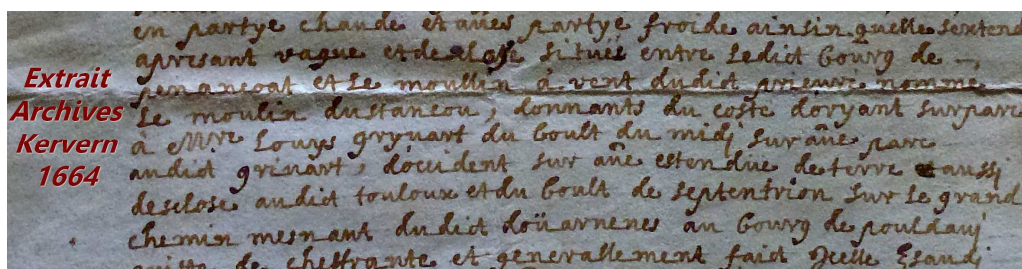 Extrait
Archives
Kervern
1664
en partye chaude et aües partye froide ainsin quelle sextend
apresant vague et desclose situee entre ledict bourg de
penancoat et le moullin à vent dudict prieuré nommé
le moulin dustancou, donnants du costé doryant sur parc
à Mre Louys gryuart du boult du midj sur aüe parc
audict griuart, docudent sur aüe estendue de terre aussj
desclose audict touloux et du boult de septentrion sur le grand
chemin mesnant dudict doüarnenes au bourg de pouldauj
de cheffrante et generallement faict Jcelle